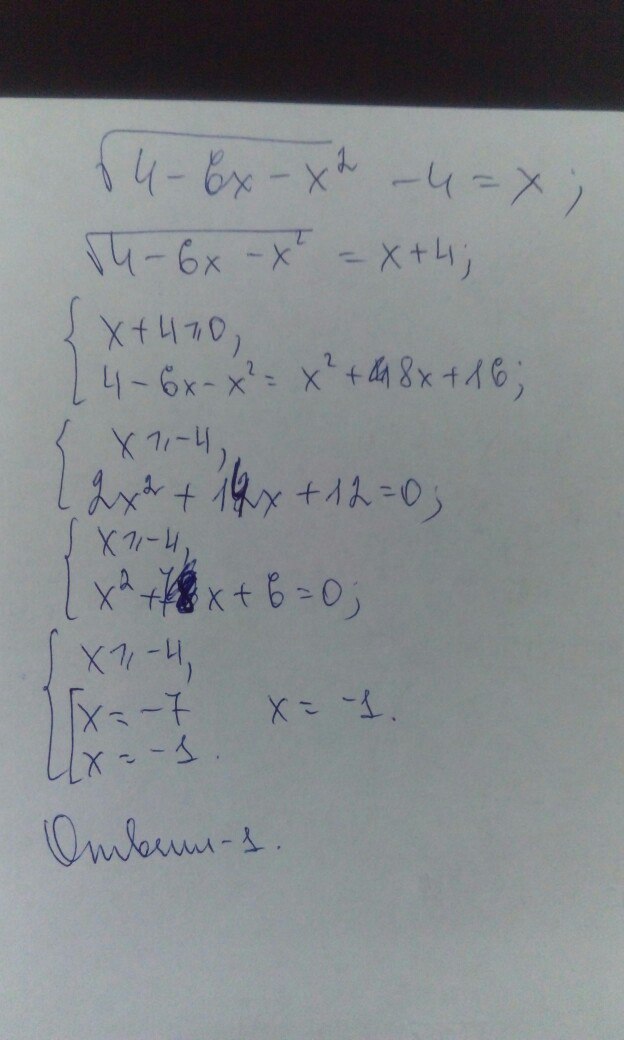 √4 - 6x - x² - 4 = x;
√4 - 6x - x² = x + 4;
x + 4 ≥ 0,
4 - 6x - x² = x² + 8x + 16;
x ≥ -4,
2x² + 14x + 12 = 0;
x ≥ -4,
x² + 7x + 6 = 0;
x ≥ -4,
x = -7 x = -1.
x = -1.
Ответ: -1.